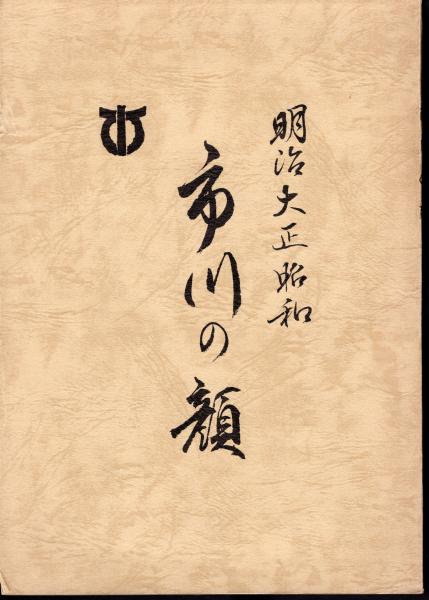 明治大正昭和
市川の顔